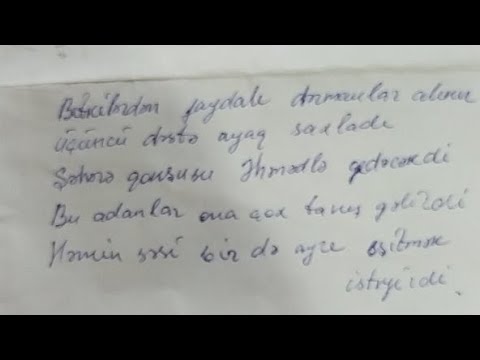 Bitkilərdən faydalı dərmanlar alınır
üçüncü dəstə ayaq saxladı
Şəhərə qonşusu Əhmədlə gedəcəkdi
Bu adamlar ona çox tanış gəlirdi
Həmin səsi bir də ayrı eşitmək
istəyirdi.